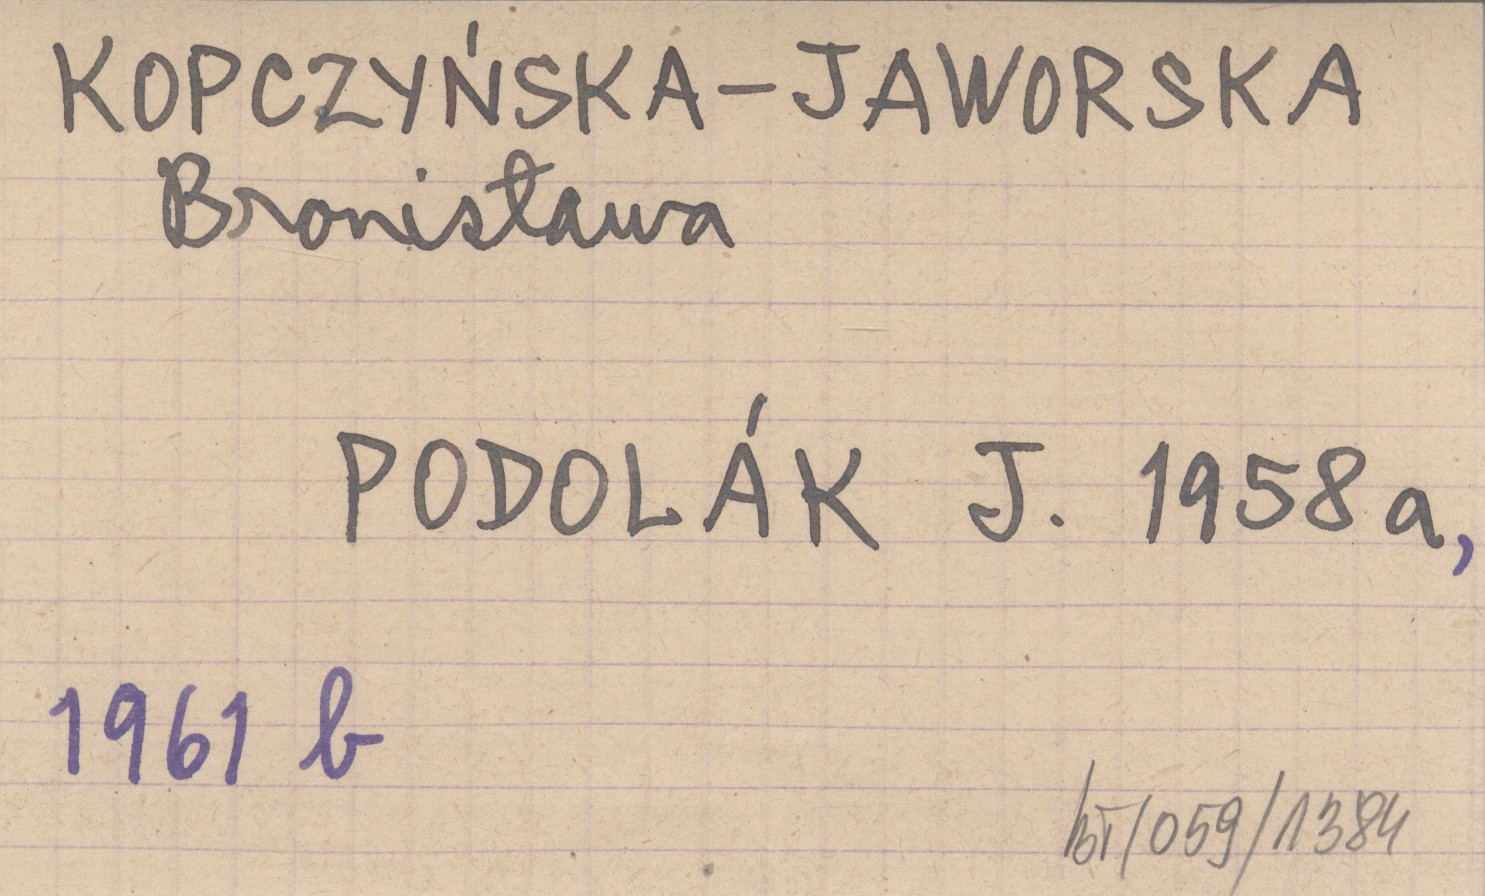 KOPCZYŃSKA-JAWORSKA
Bronisława
PODOLÁK J. 1958a,
1961 b
bT/059/1384